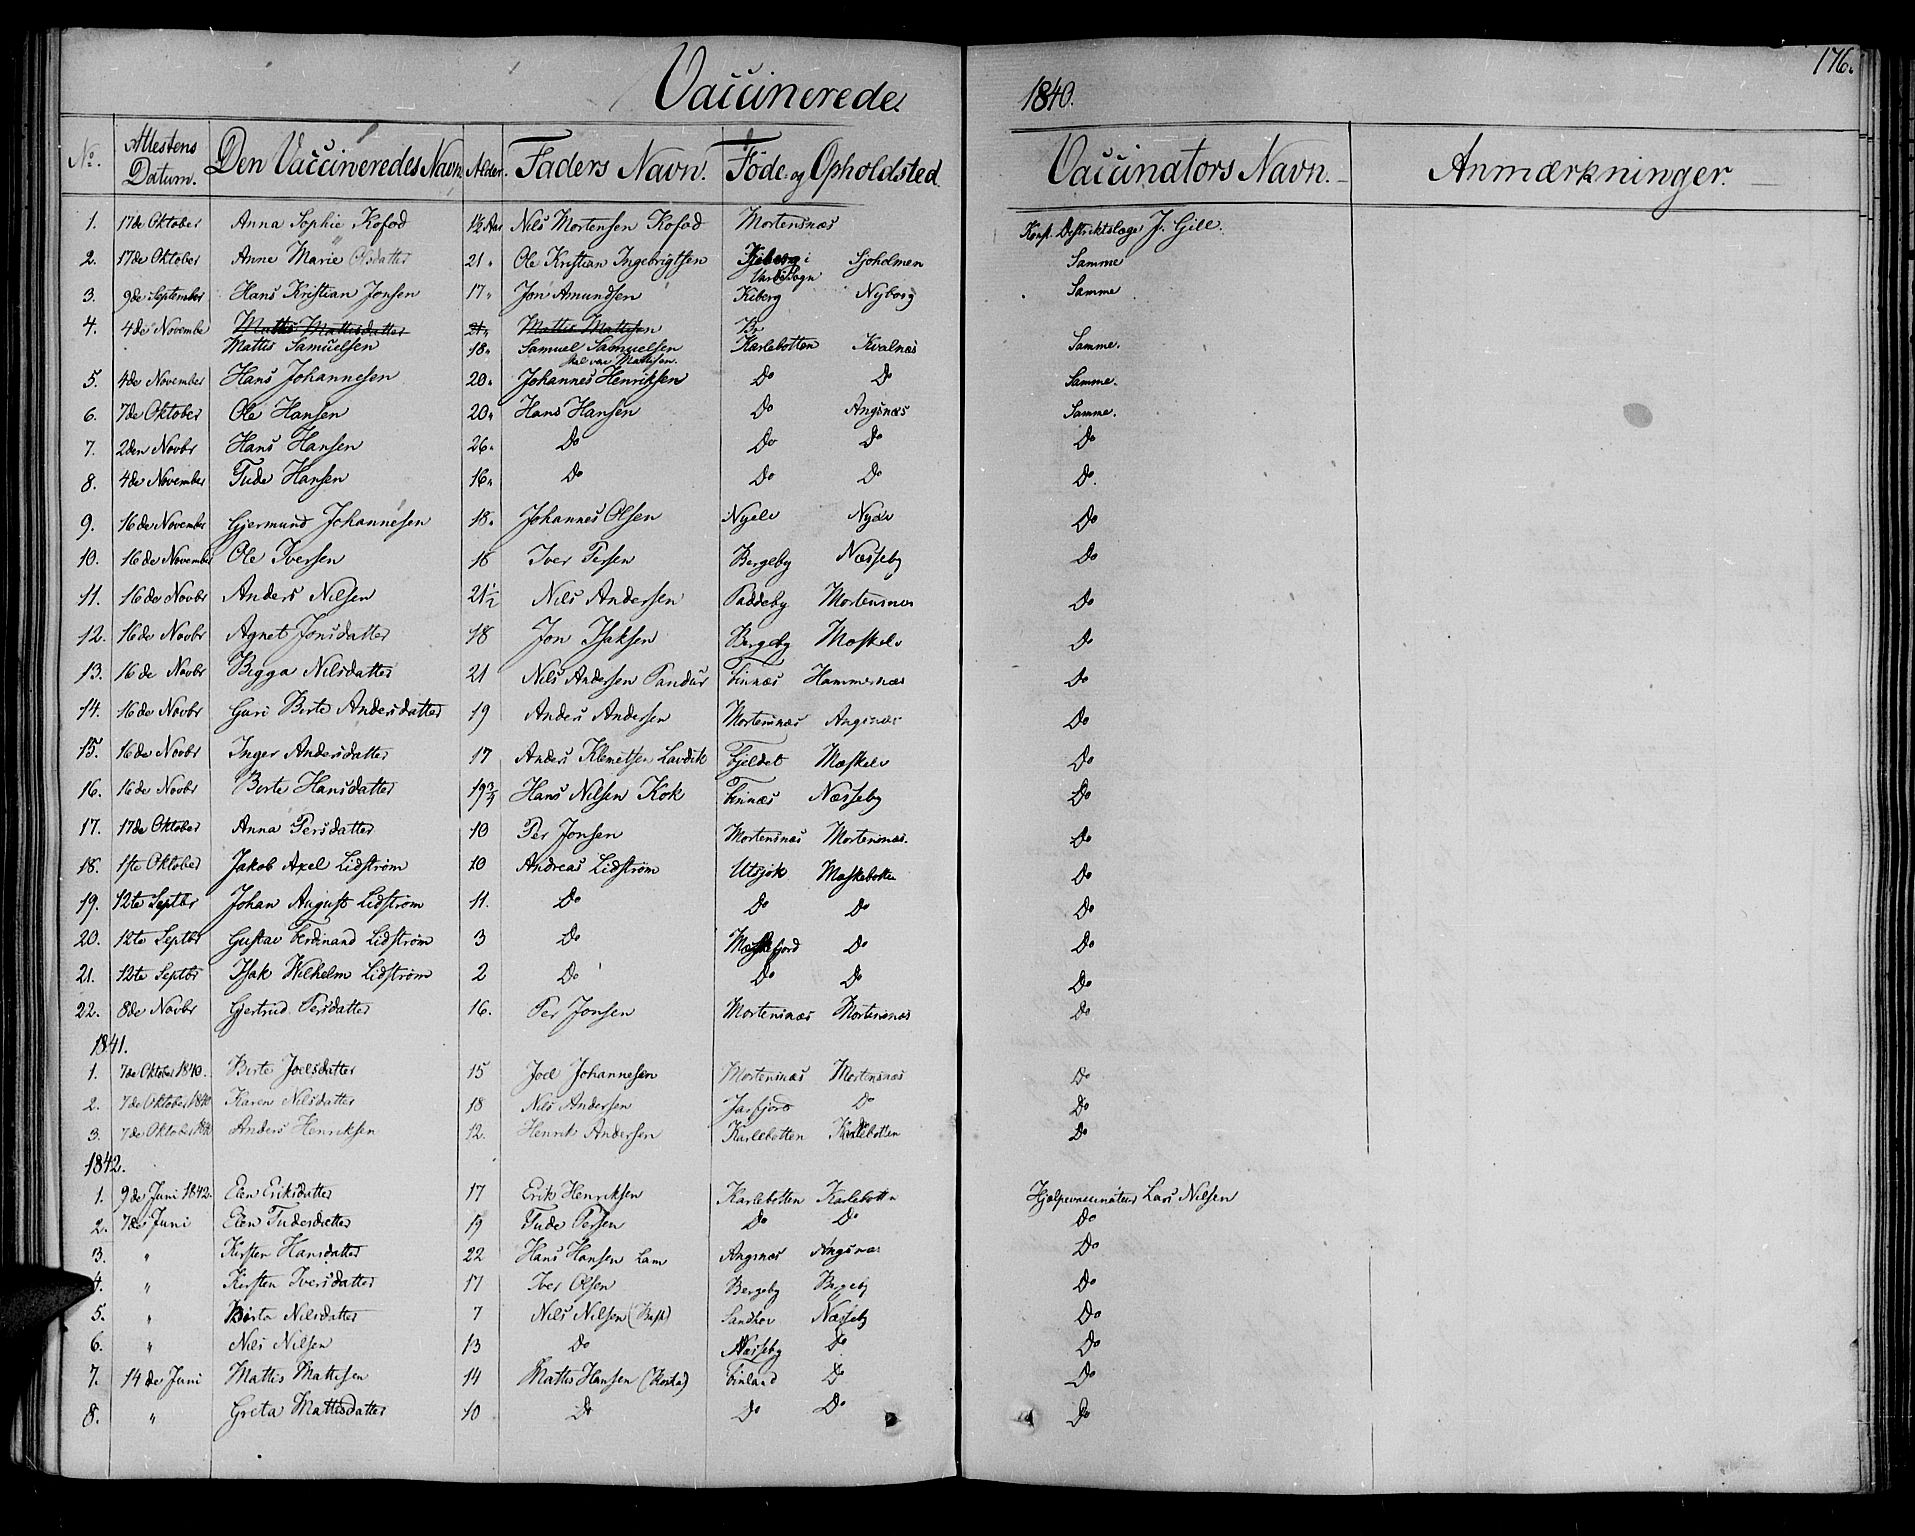 Vaccinerede 1840. 176.
No. Attestens Datum. Den Vaccineredes Navn Alder. Faders Navn. Føde- og Opholdsted. Vaccinators Navn. Anmærkninger.
1. 17de Oktober Anna Sophie Kofod 1½ Aar Nils Mortensen Kofod Mortensnæs Konst. Destriktslæge J. Gill.
2. 17de Oktober Anne Marie Olsdatter 21 " Ole Kristian Ingebrigtsen Kjeberg i Vardø Sogn Sjoholmen Samme
3. 9de September Hans Kristian Jonsen 17 " Jon Amundsen Kiberg Nyborg Samme
4. 4de Novembe Mattis Mattisdatter 21 " Mattis Mattisen
Mattis Samuelsen 18 " Samuel Samuelsen Karlebotten Kvalnæs Samme.
skal var Mattisen.
5. 4de November Hans Johannesen 20 " Johannes Henriksen Do Do Samme.
6. 7de Oktober Ole Hansen 20 " Hans Hansen Do Angsnæs Samme.
7. 2den Novbr Hans Hansen 26 " Do Do Do Do
8. 4de November Tude Hansen 16 " Do Do Do Do.
9. 16de November Gjermund Johannesen 18 " Johannes Olsen Nyelv Nyelv Do
10. 16de November Ole Iversen 16 Iver Persen Bergeby Næsseby Do
11. 16de Novbr Anders Nilsen 21½ Nils Andersen Paddeby Mortensnes Do
12. 16de Novbr Agnet Jonsdatter 18 Jon Isaksen Bergeby Mæskelv Do
13. 16de Novbr Bigga Nilsdatter 21 Nils Andersen Pandur Finnæs Hammernæs Do
14. 16de Novbr Guri Birte Andersdatter 19 Anders Andersen Mortensnæs Angsnæs Do
15. 16de Novbr Inger Andersdatter 17 Anders Klemetsen Lavdik Fjeldet Mæskelv Do
16. 16de Novbr Berte Hansdatter 19¾ Hans Nilsen Kok Finnæs Næsseby Do
17. 17de Oktober Anna Persdatter 10 Per Jonsen Mortensnæs Mortensnæs. Do
18. 1ste Oktober Jakob Axel Lidstrøm 10 Andreas Lidstrøm Utsjok Mæskebotten Do
19. 12te Septbr Johan August Lidstrøm 11. Do Do Do Do
20. 12te Septbr Gustav Ferdinand Lidstrøm 3 Do Mæskefjord Do Do
21. 12te Septbr Isak Wilhelm Lidstrøm 2 Do Do Do Do
22. 8de Novbr Gjertrud Persdatter 16. Per Jonsen Mortensnæs Mortensnæs Do
1841.
1. 7de Oktober 1840. Berte Joelsdatter 15 Joel Johannesen Mortensnæs Mortensnæs Do
2. 7de Oktober 1840 Karen Nilsdatter 18 Nils Andersen Jarfjord Do Do
3. 7de Oktober 1840 Anders Henriksen 12. Henrik Andersen Karlebotten Karlebotten Do
1842.
1. 9de Juni 1842. Elen Eriksdatter 17 Erik Henriksen Karlebotten Karlebottn Hjelpevaccinatør Lars Nilsen
2. 7de Juni Elen Tudesdatter 19 Tude Persen Do Do Do
3. " Kirsten Hansdatter 22 Hans Hansen Lam Angsnæs Angsnæs Do
4. " Kirsten Iversdatter 17 Iver Olsen Bergeby Bergeby Do
5. " Birta Nilsdatter 7 Nils Nilsen Sandlev Næsseby Do
6. " Nils Nilsen 13 Do Næsseby Do Do
7. 14de Juni Mattis Mattisen 14 Mattis Hansen Finland Do Do
8. " Greta Mattisdatter 10 Do Do Do Do